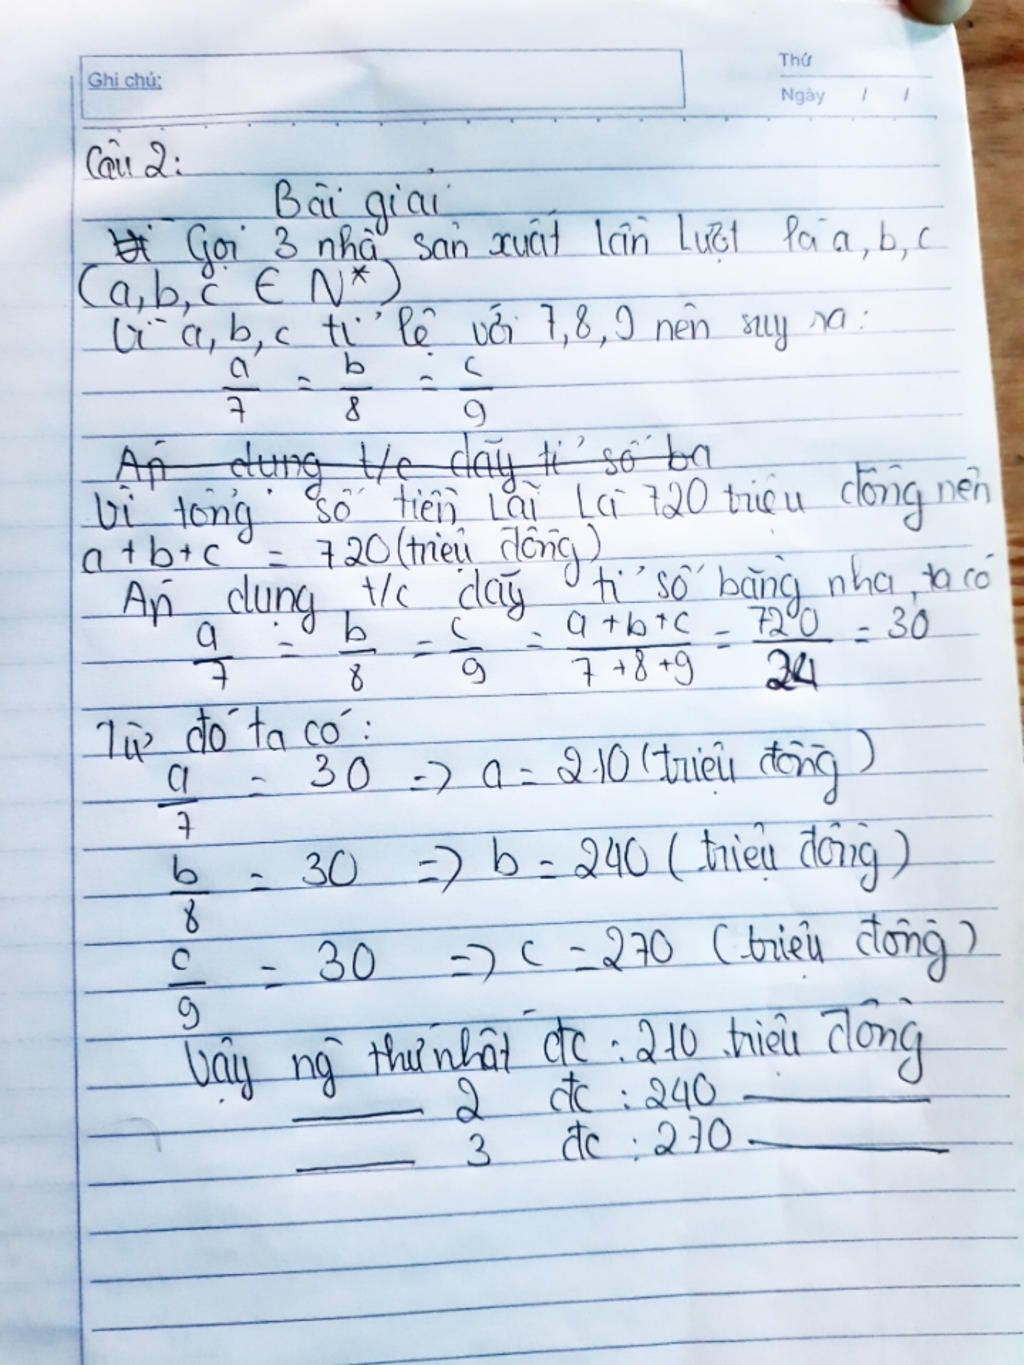 Ghi chú:
Thứ
Ngày / /
Câu 2:
Bài giải
Gọi 3 nhà sản xuất lần lượt là a, b, c
(a, b, c ∈ N*)
Vì a, b, c tỉ lệ với 7, 8, 9 nên suy ra:
a/7 = b/8 = c/9
Áp dụng t/c dãy tỉ số ba
Vì tổng số tiền lãi là 720 triệu đồng nên
a + b + c = 720 (triệu đồng)
Áp dụng t/c dãy tỉ số bằng nha, ta có
a/7 = b/8 = c/9 = a + b + c/7 + 8 + 9 = 720/24 = 30
Từ đó ta có:
a/7 = 30 => a = 210 (triệu đồng)
b/8 = 30 => b = 240 (triệu đồng)
c/9 = 30 => c = 270 (triệu đồng)
Vậy ng thứ nhất đc : 210 triệu đồng
—— 2 đc : 240 ——
—— 3 đc : 270 ——